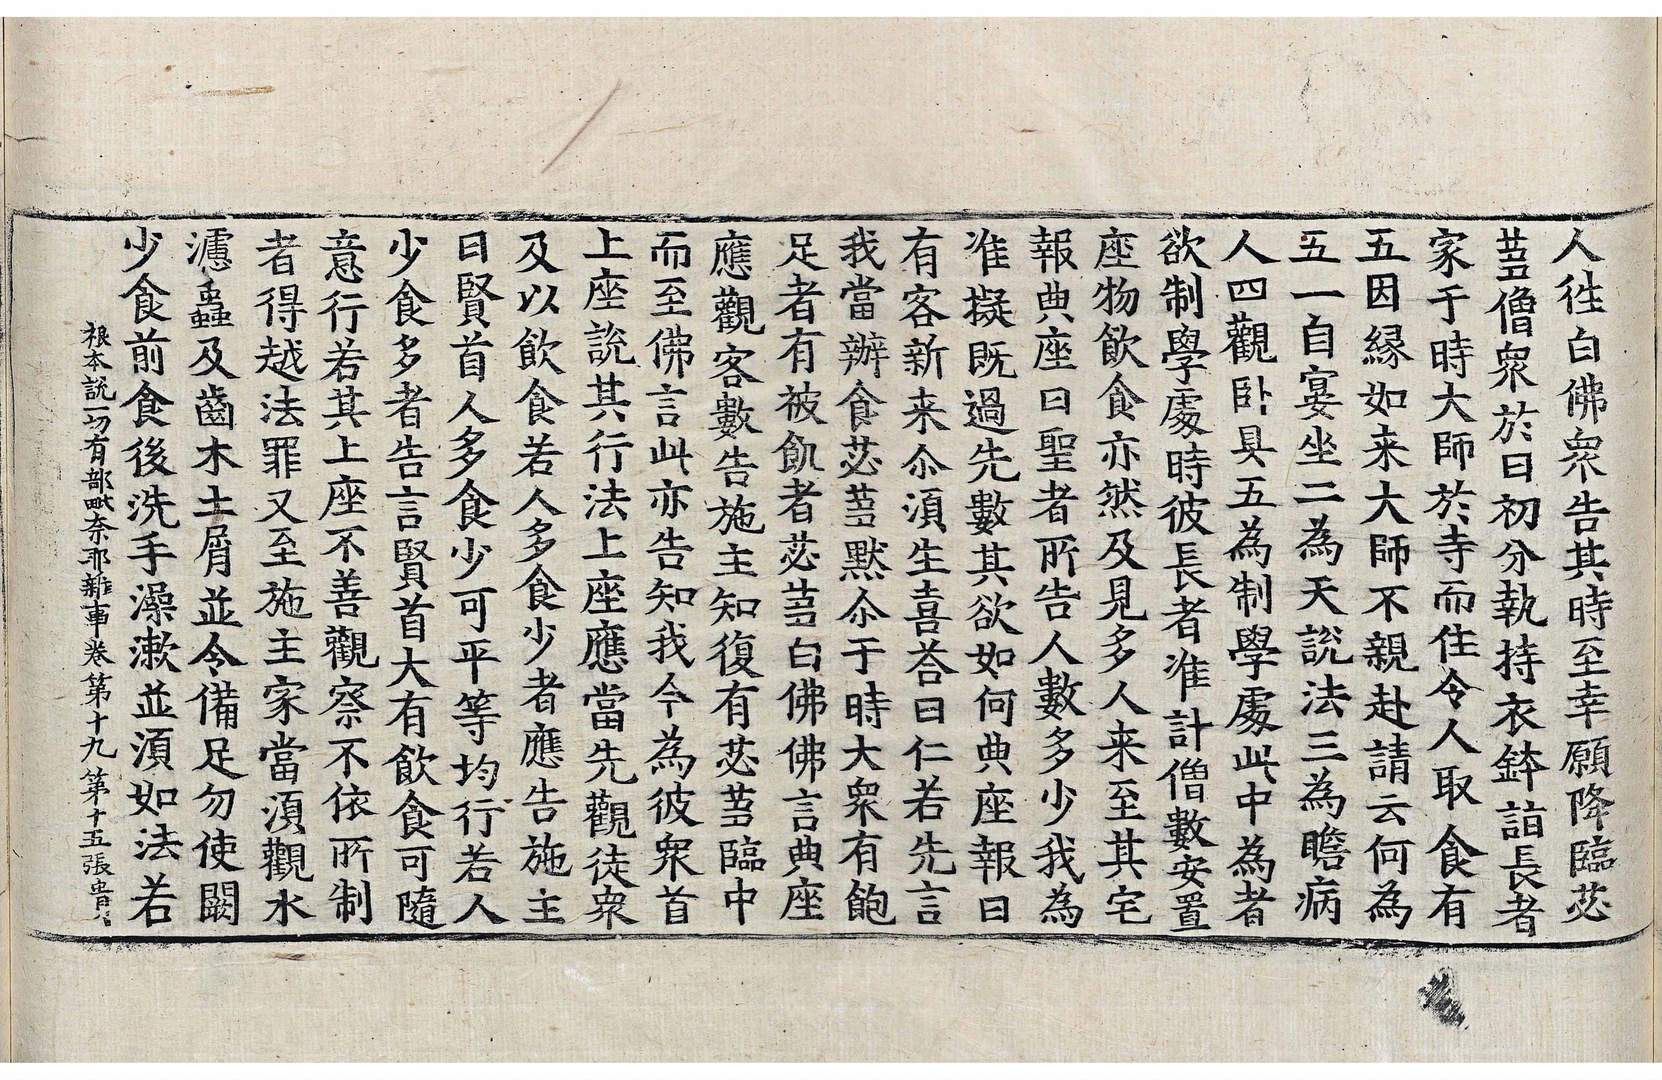 人徃白佛衆告其時至幸願降臨苾
蒭僧衆於日初分執持衣鉢詣長者
家于時大師於寺而住令人取食有
五因緣如来大師不親赴請云何為
五一自宴坐二為天說法三為瞻病
人四觀卧具五為制學處此中為者
欲制學處時彼長者准計僧數安置
座物飲食亦然及見多人来至其宅
報典座曰聖者所告人數多少我為
准擬既過先數其欲如何典座報曰
有客新来尒湏生喜荅曰仁若先言
我當辦食苾蒭默尒于時大衆有飽
足者有被飢者苾蒭白佛佛言典座
應觀客數告施主知復有苾蒭臨中
而至佛言此亦告知我今為彼衆首
上座說其行法上座應當先觀徒衆
及以飲食若人多食少者應告施主
曰賢首人多食少可平等均行若人
少食多者告言賢首大有飲食可隨
意行若其上座不善觀察不依所制
者得越法罪又至施主家當湏觀水
濾蟲及齒木土屑並令備足勿使闕
少食前食後洗手澡漱並湏如法若
根本說一切有部毗奈耶雜事卷第十九 第十五張